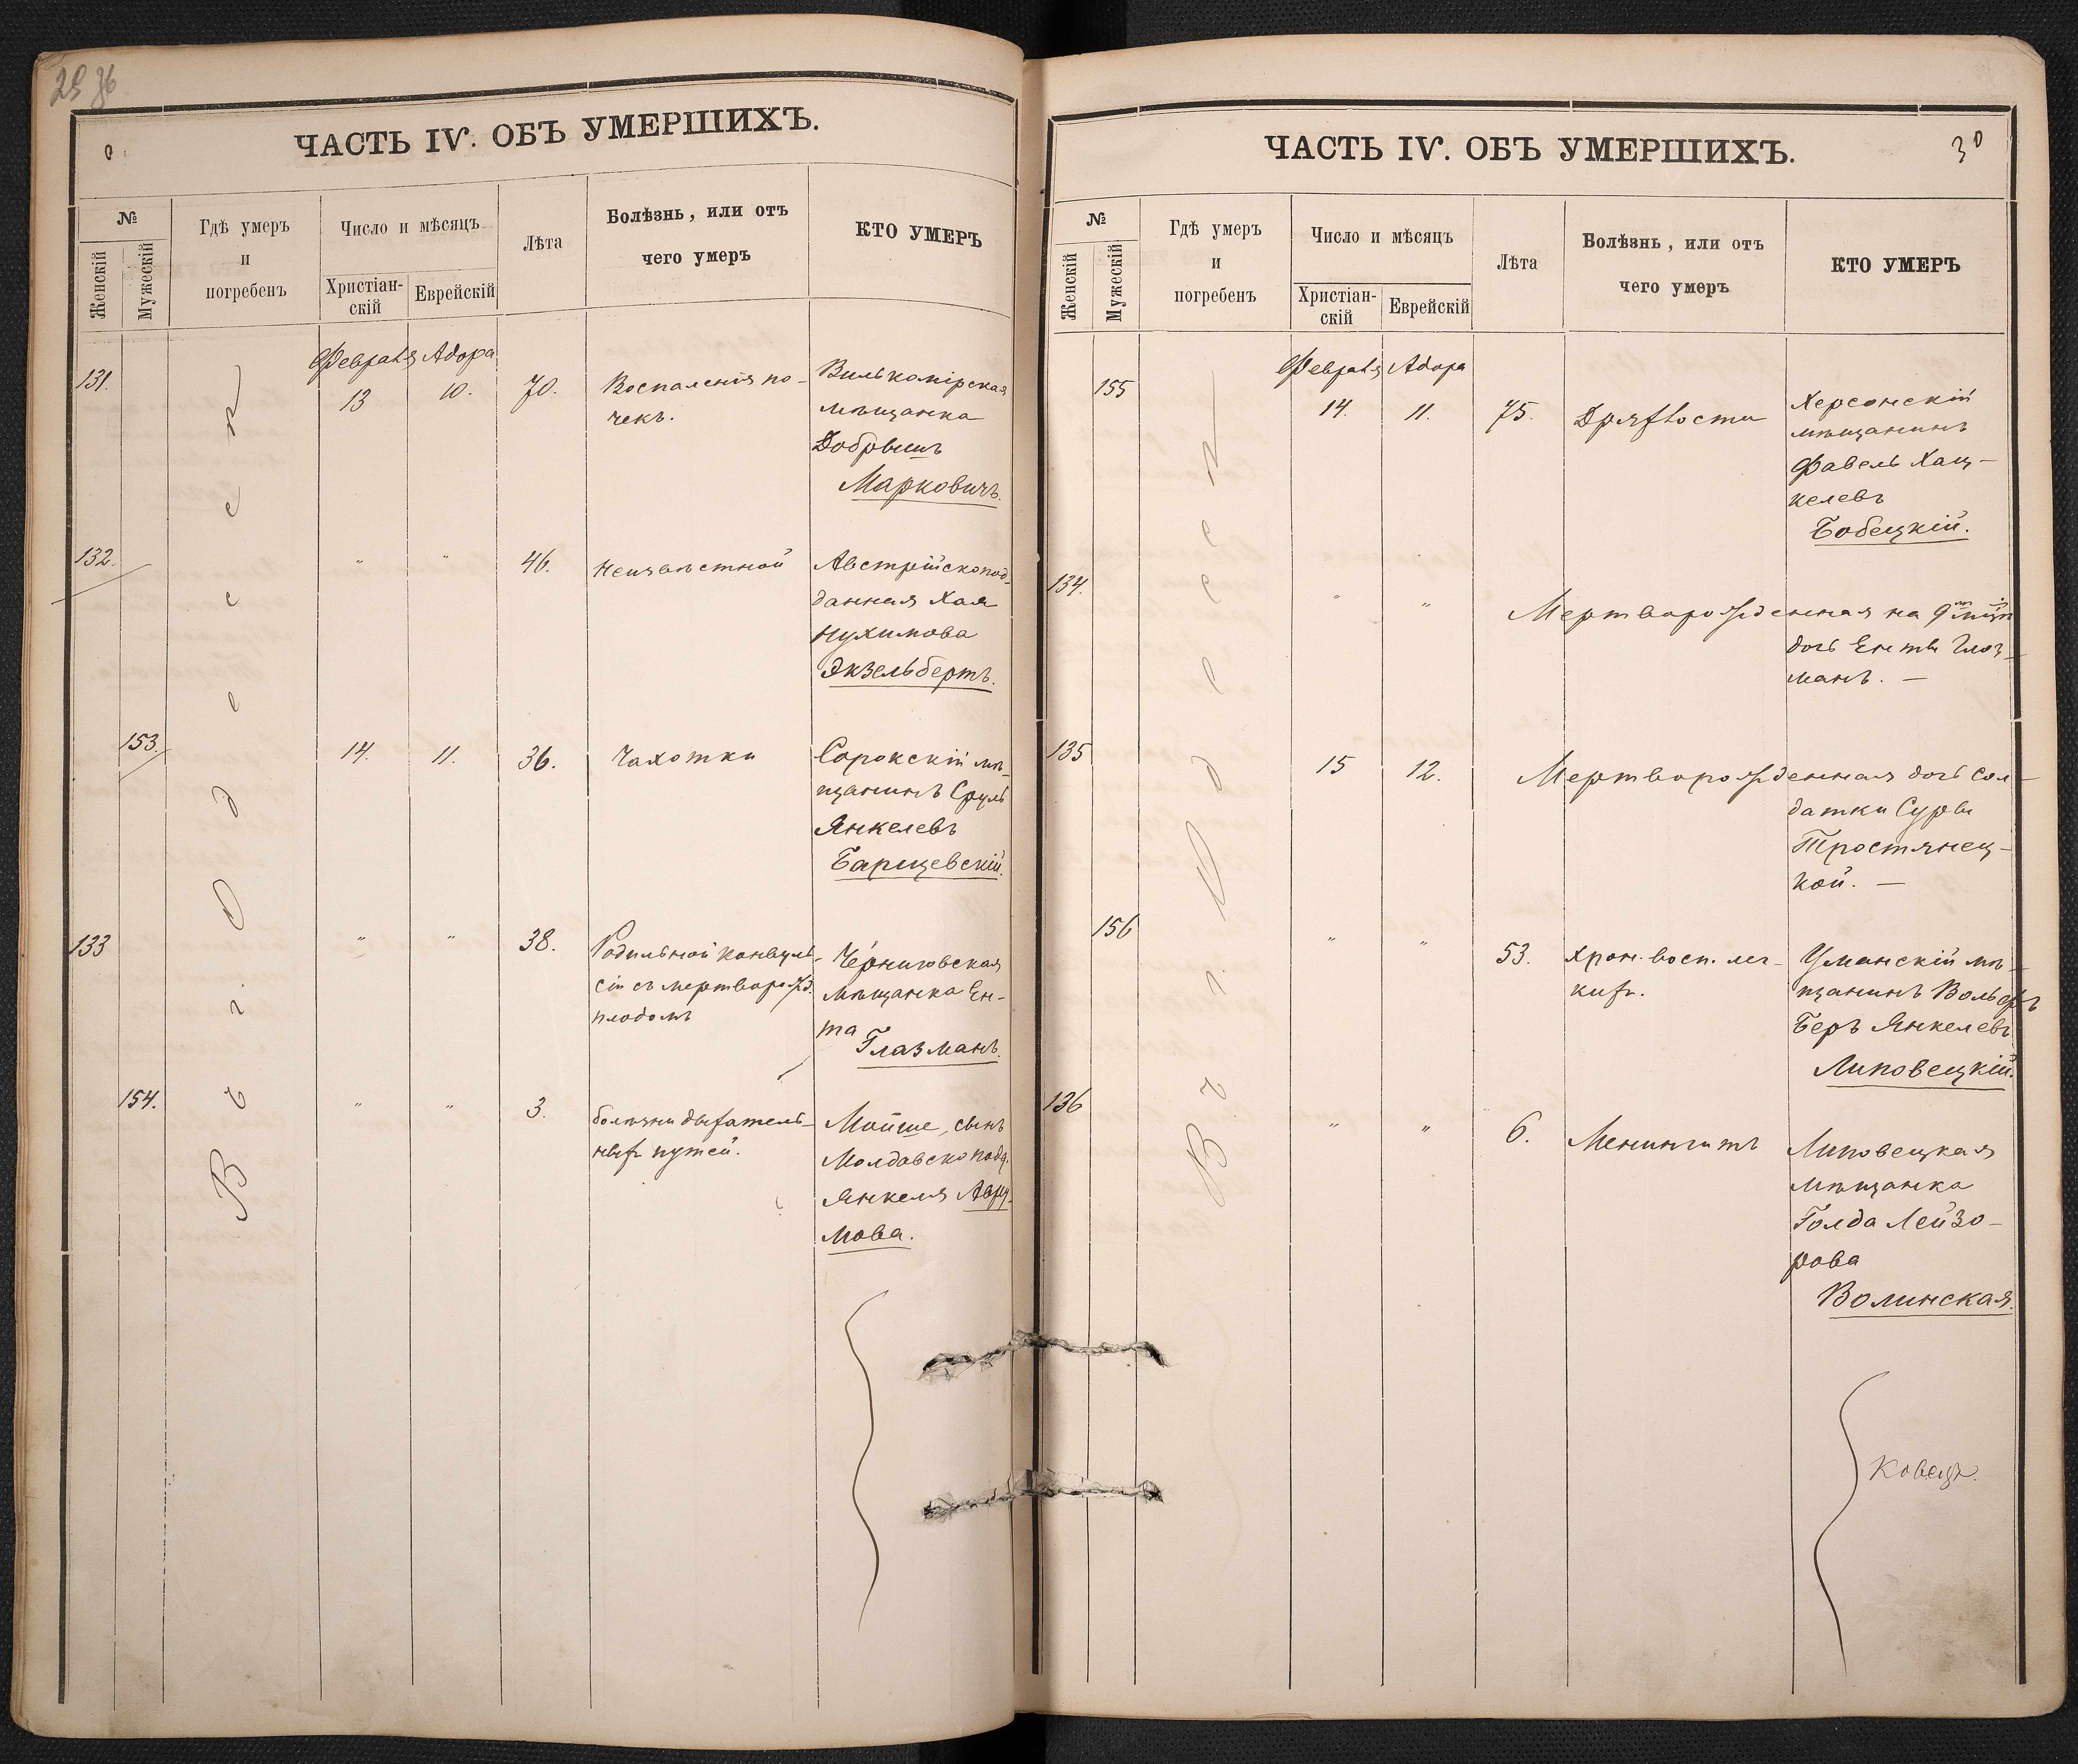 29
ЧАСТЬ IV. ОБЪ УМЕРШИХЪ.
№
Женскій
Мужескій
Гдѣ умеръ
и
погребенъ
Число и мѣсяцъ
Христіан-
скій
Еврейскій
Лѣта
Болѣзнь, или отъ
чего умеръ
КТО УМЕРЪ
Въ г. Одессѣ
Февраля Адора
131. 13 10. 70. Воспаленія по-
чекъ.
Вилькомірская
мѣщанка
Добрышъ
Марковичъ.
132. " " 46. Неизвѣстной
Австрійскопод-
данная Хая
Нухимова
Экзельбертъ.
153. 14. 11. 36. Чахотки
Сорокскій мѣ-
щанинъ Сруль
Янкелевъ
Барщевскій.
133 " " 38. Родильной конвуль-
сіи съ мертворожд.
плодомъ
Черниговская
мѣщанка Ен-
та
Глазманъ.
154. " " 3. болѣзни дыхатель-
ныхъ путей.
Мойше, сынъ
Молдавскоподд.
Янкеля Авру-
мова.
ЧАСТЬ IV. ОБЪ УМЕРШИХЪ.
30
№
Женскій
Мужескій
Гдѣ умеръ
и
погребенъ
Число и мѣсяцъ
Христіан-
скій
Еврейскій
Лѣта
Болѣзнь, или отъ
чего умеръ
КТО УМЕРЪ
Въ г. Одессѣ
Февраля Адора
155 14. 11. 75. Дряхлости
Херсонскій
мѣщанинъ
Фавель Хац-
келевъ
Бобецкій.
134. " " Мертворожденная на 9
дочь Енты Глоз-
манъ. —
135 15 12. Мертворожденная дочь Сол-
датки Суры
Тростянец-
кой. —
156 " " 53. Хрон. восп. лег-
кихъ.
Уманскій мѣ-
щанинъ Вольфъ
Беръ Янкелевъ
Липовецкій.
136 " " 6. Менингитъ
Липовецкая
мѣщанка
Голда Лейзо-
рова
Волинская.